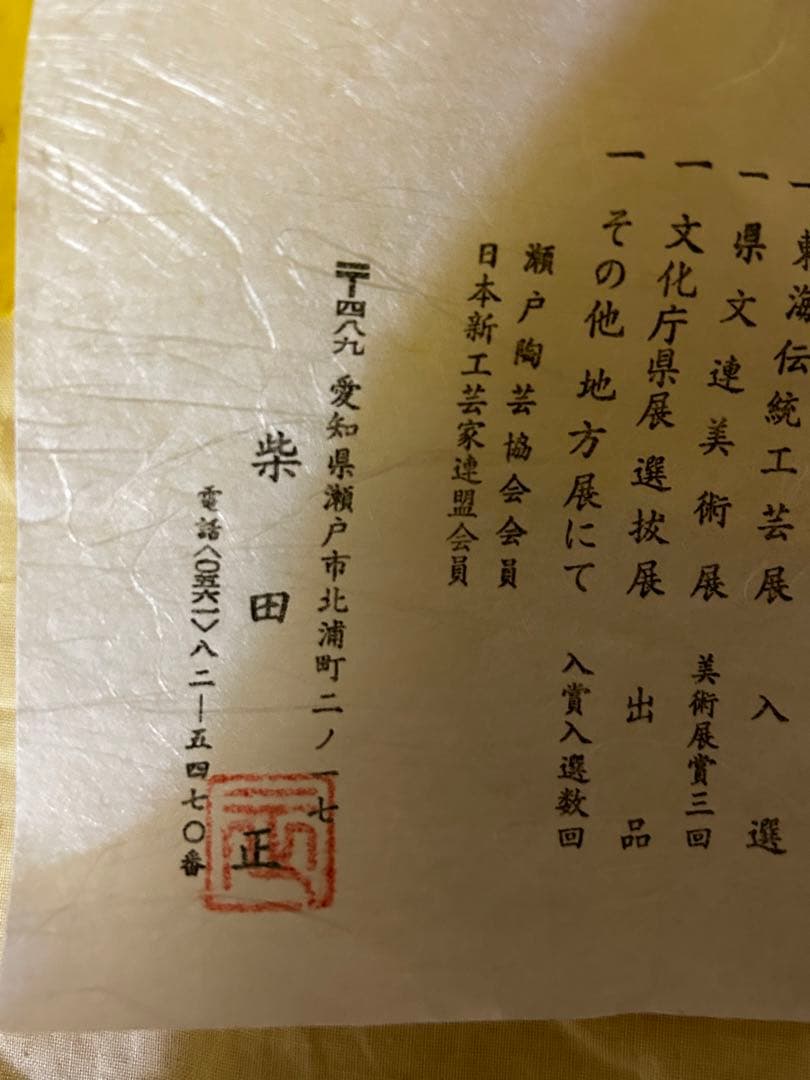 一 東海伝統工芸展 入選
一 県文連美術展 美術展賞三回
一 文化庁県展選抜展 出品
一 その他地方展にて 入賞入選数回
瀬戸陶芸協会会員
日本新工芸家連盟会員
〒四八九 愛知県瀬戸市北浦町二ノ一七
柴田 正
電話〈〇五六一〉八二―五四七〇番